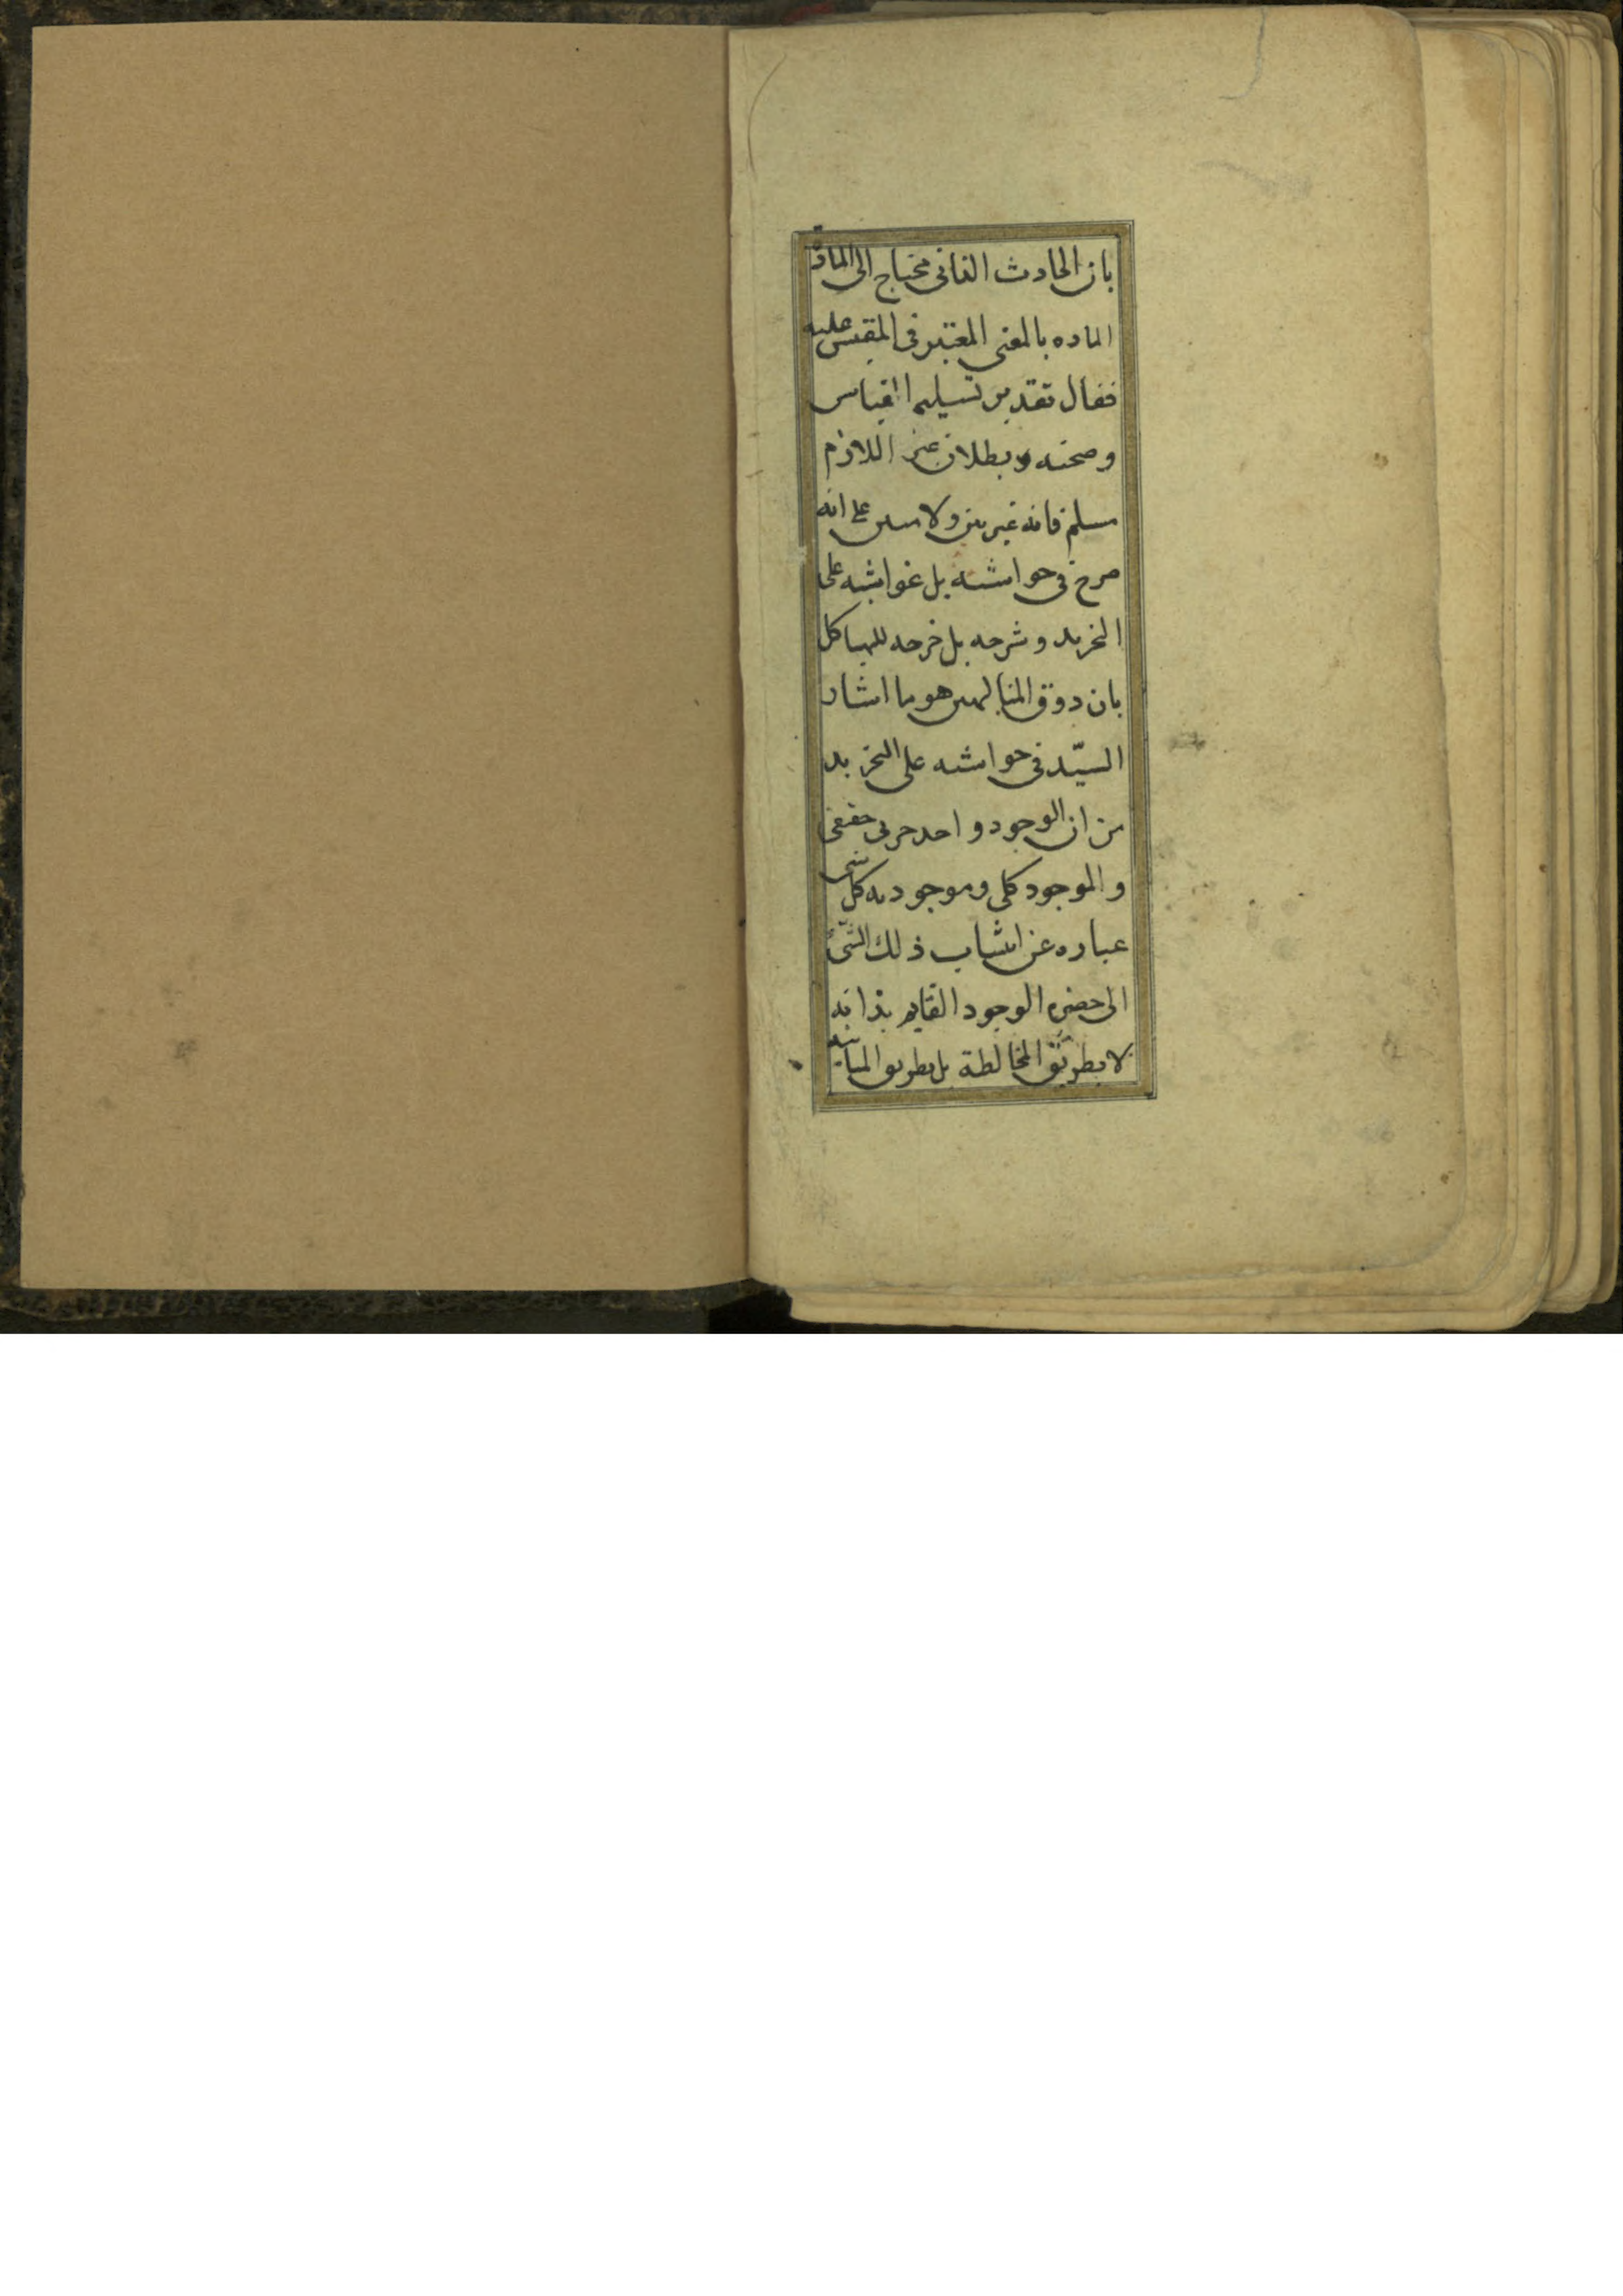 بان الحادث الفانی محتاج الی المادة
الماده بالمعنی المعتبر فی المقیس علیه
فقال تقدیر تسلیم القیاس
و صحته و بطلان عین اللازم
مسلم فانه غیر بین ولا مبین علی انه
صرح فی حواشیه بل غواشیه علی
التجرید و شرحه بل جرحه للهیاکل
بان ذوق المتالهین هو ما اشار
السیّد فی حواشیه علی التجرید
من ان الوجود واحد جزئی حقیقی
و الموجود کلی و موجودیه کل شی
عباره عن انتساب ذلك الشّیء
الی حضره الوجود القایم بذاته
لا بطریق المخالطة بل بطریق المباینه